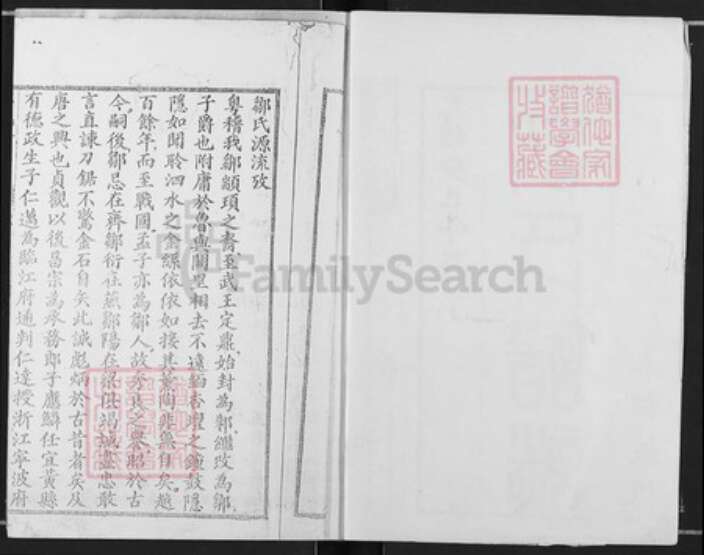 鄒氏源流攷
粵稽我鄒顓頊之裔至武王定鼎始封為邾繼改為鄒
子爵也附庸於魯與闕里相去不遠緬杏壇之鐘鼓隱
隱如聞聆泗水之金絲依依如接其薰陶非無自矣越
百餘年而至戰國孟子亦為鄒人故秀良之舉昭於古
今嗣後鄒忌在齊鄒衍在燕鄒陽在梁俱竭誠盡忠敢
言直諫刀鋸不驚金石自矢此誠彪炳於古昔者矣及
唐之興也貞觀以後昌宗為承務郎子應麟任宜黃縣
有德政生子仁邁為臨江府通判仁達授浙江寧波府
猶他家
譜學會
收藏
FamilySearch